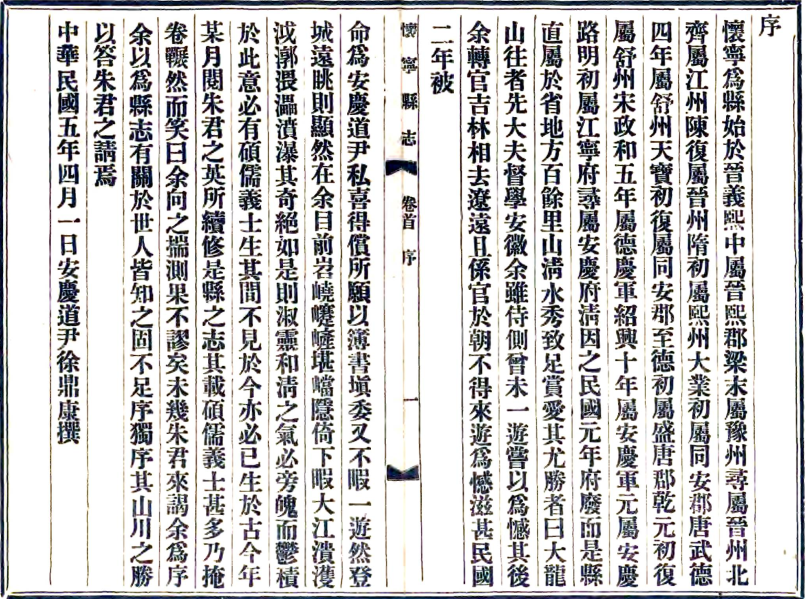 序
懷寧爲縣始於晉義熙中屬晉熙郡梁末屬豫州尋屬晉州北
齊屬江州陳復屬晉州隋初屬熙州大業初屬同安郡唐武德
四年屬舒州天寶初復屬同安郡至德初屬盛唐郡乾元初復
屬舒州宋政和五年屬德慶軍紹興十年屬安慶軍元屬安慶
路明初屬江寧府尋屬安慶府清因之民國元年府廢而是縣
直屬於省地方百餘里山清水秀致足賞愛其尤勝者曰大龍
山往者先大夫督學安徽余雖侍側曾未一遊嘗以爲憾其後
余轉官吉林相去遼遠且係官於朝不得來遊爲憾滋甚民國
二年被
懷寧縣志 卷首 序 一
命爲安慶道尹私喜得償所願以簿書塡委又不暇一遊然登
城遠眺則顯然在余目前岩嶢嶞嵯堪嶝隱倚下瞰大江濆濩
泧漷渨㵽濆瀑其奇絕如是則淑靈和清之氣必旁魄而鬱積
於此意必有碩儒義士生其間不見於今亦必已生於古今年
某月閱朱君之英所續修是縣之志其載碩儒義士甚多乃掩
卷囅然而笑曰余向之揣測果不謬矣未幾朱君來謁余爲序
余以爲縣志有關於世人皆知之固不足序獨序其山川之勝
以答朱君之請焉
中華民國五年四月一日安慶道尹徐鼎康撰